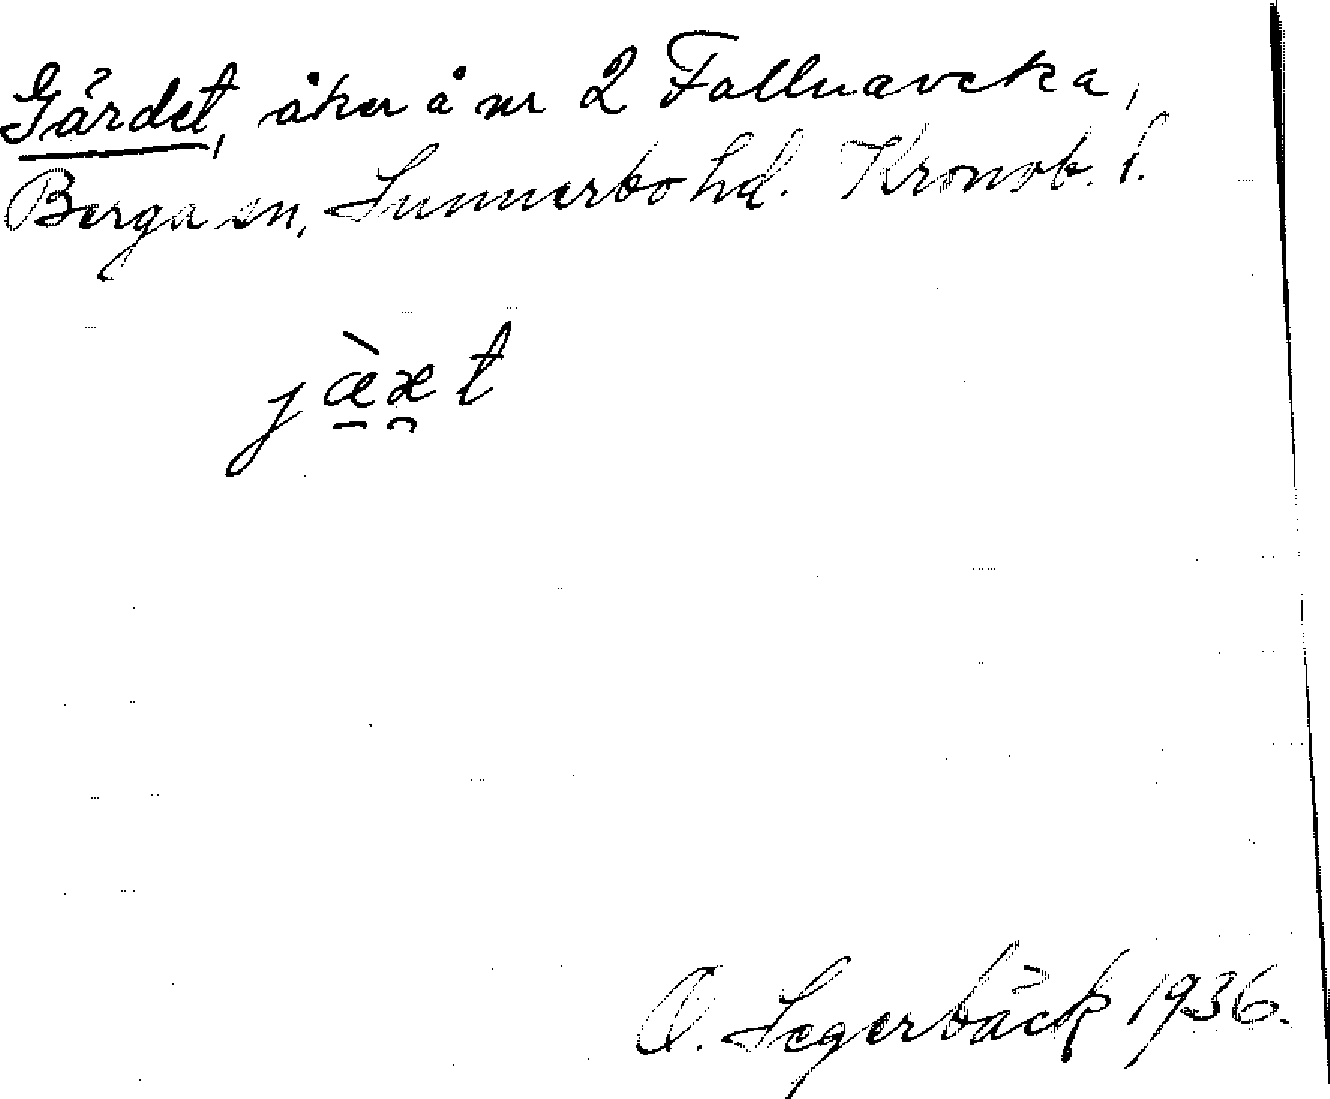 Gärdet, åker å nr 2 Fallnaveka,
Berga sn, Sunnerbo hd. Kronob. l.
jæ̀æ̯t
O. Segerbäck 1936.